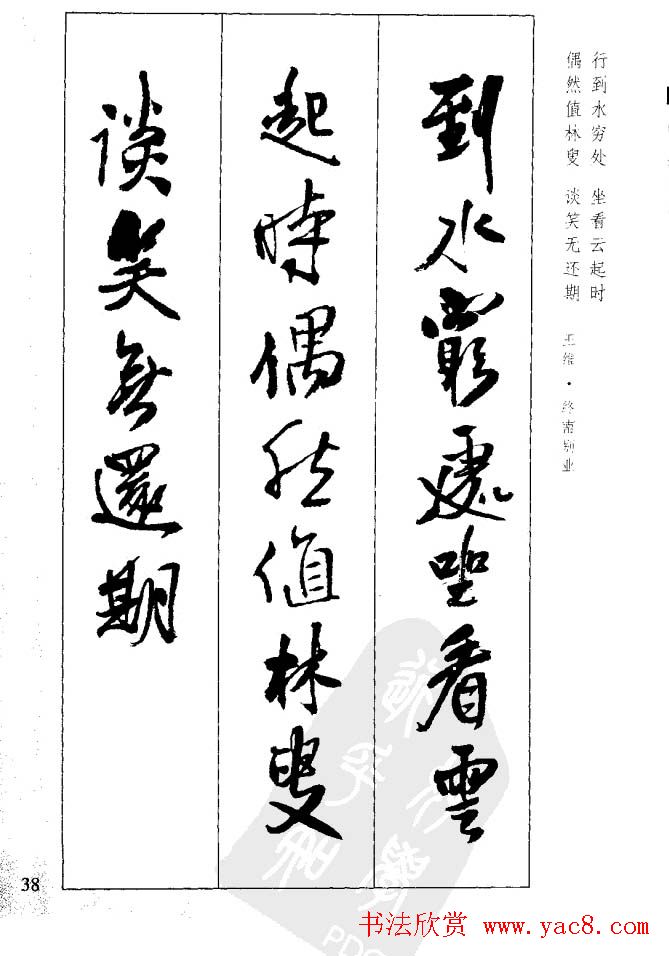 到水窮處坐看雲
起時偶然值林叟
談笑無還期
行到水穷处 坐看云起时
偶然值林叟 谈笑无还期
王维·终南别业
38
书法欣赏 www.yac8.com
PDG